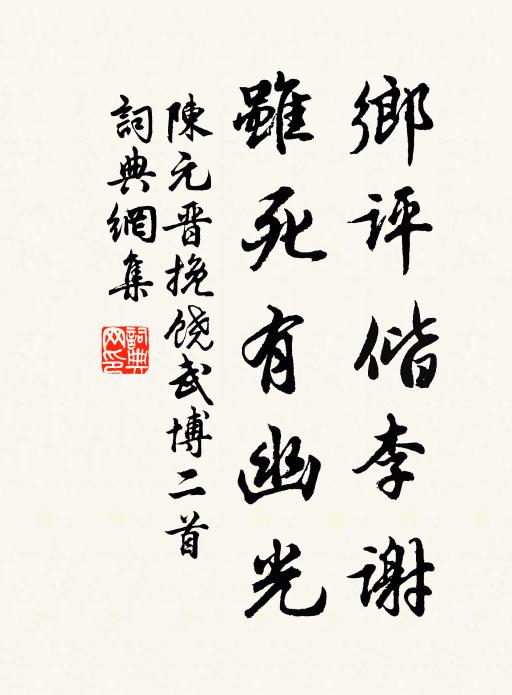 鄉评偕李谢
雖死有幽光
陳元晋挽饶武博二首
詞典網集
詞典網印